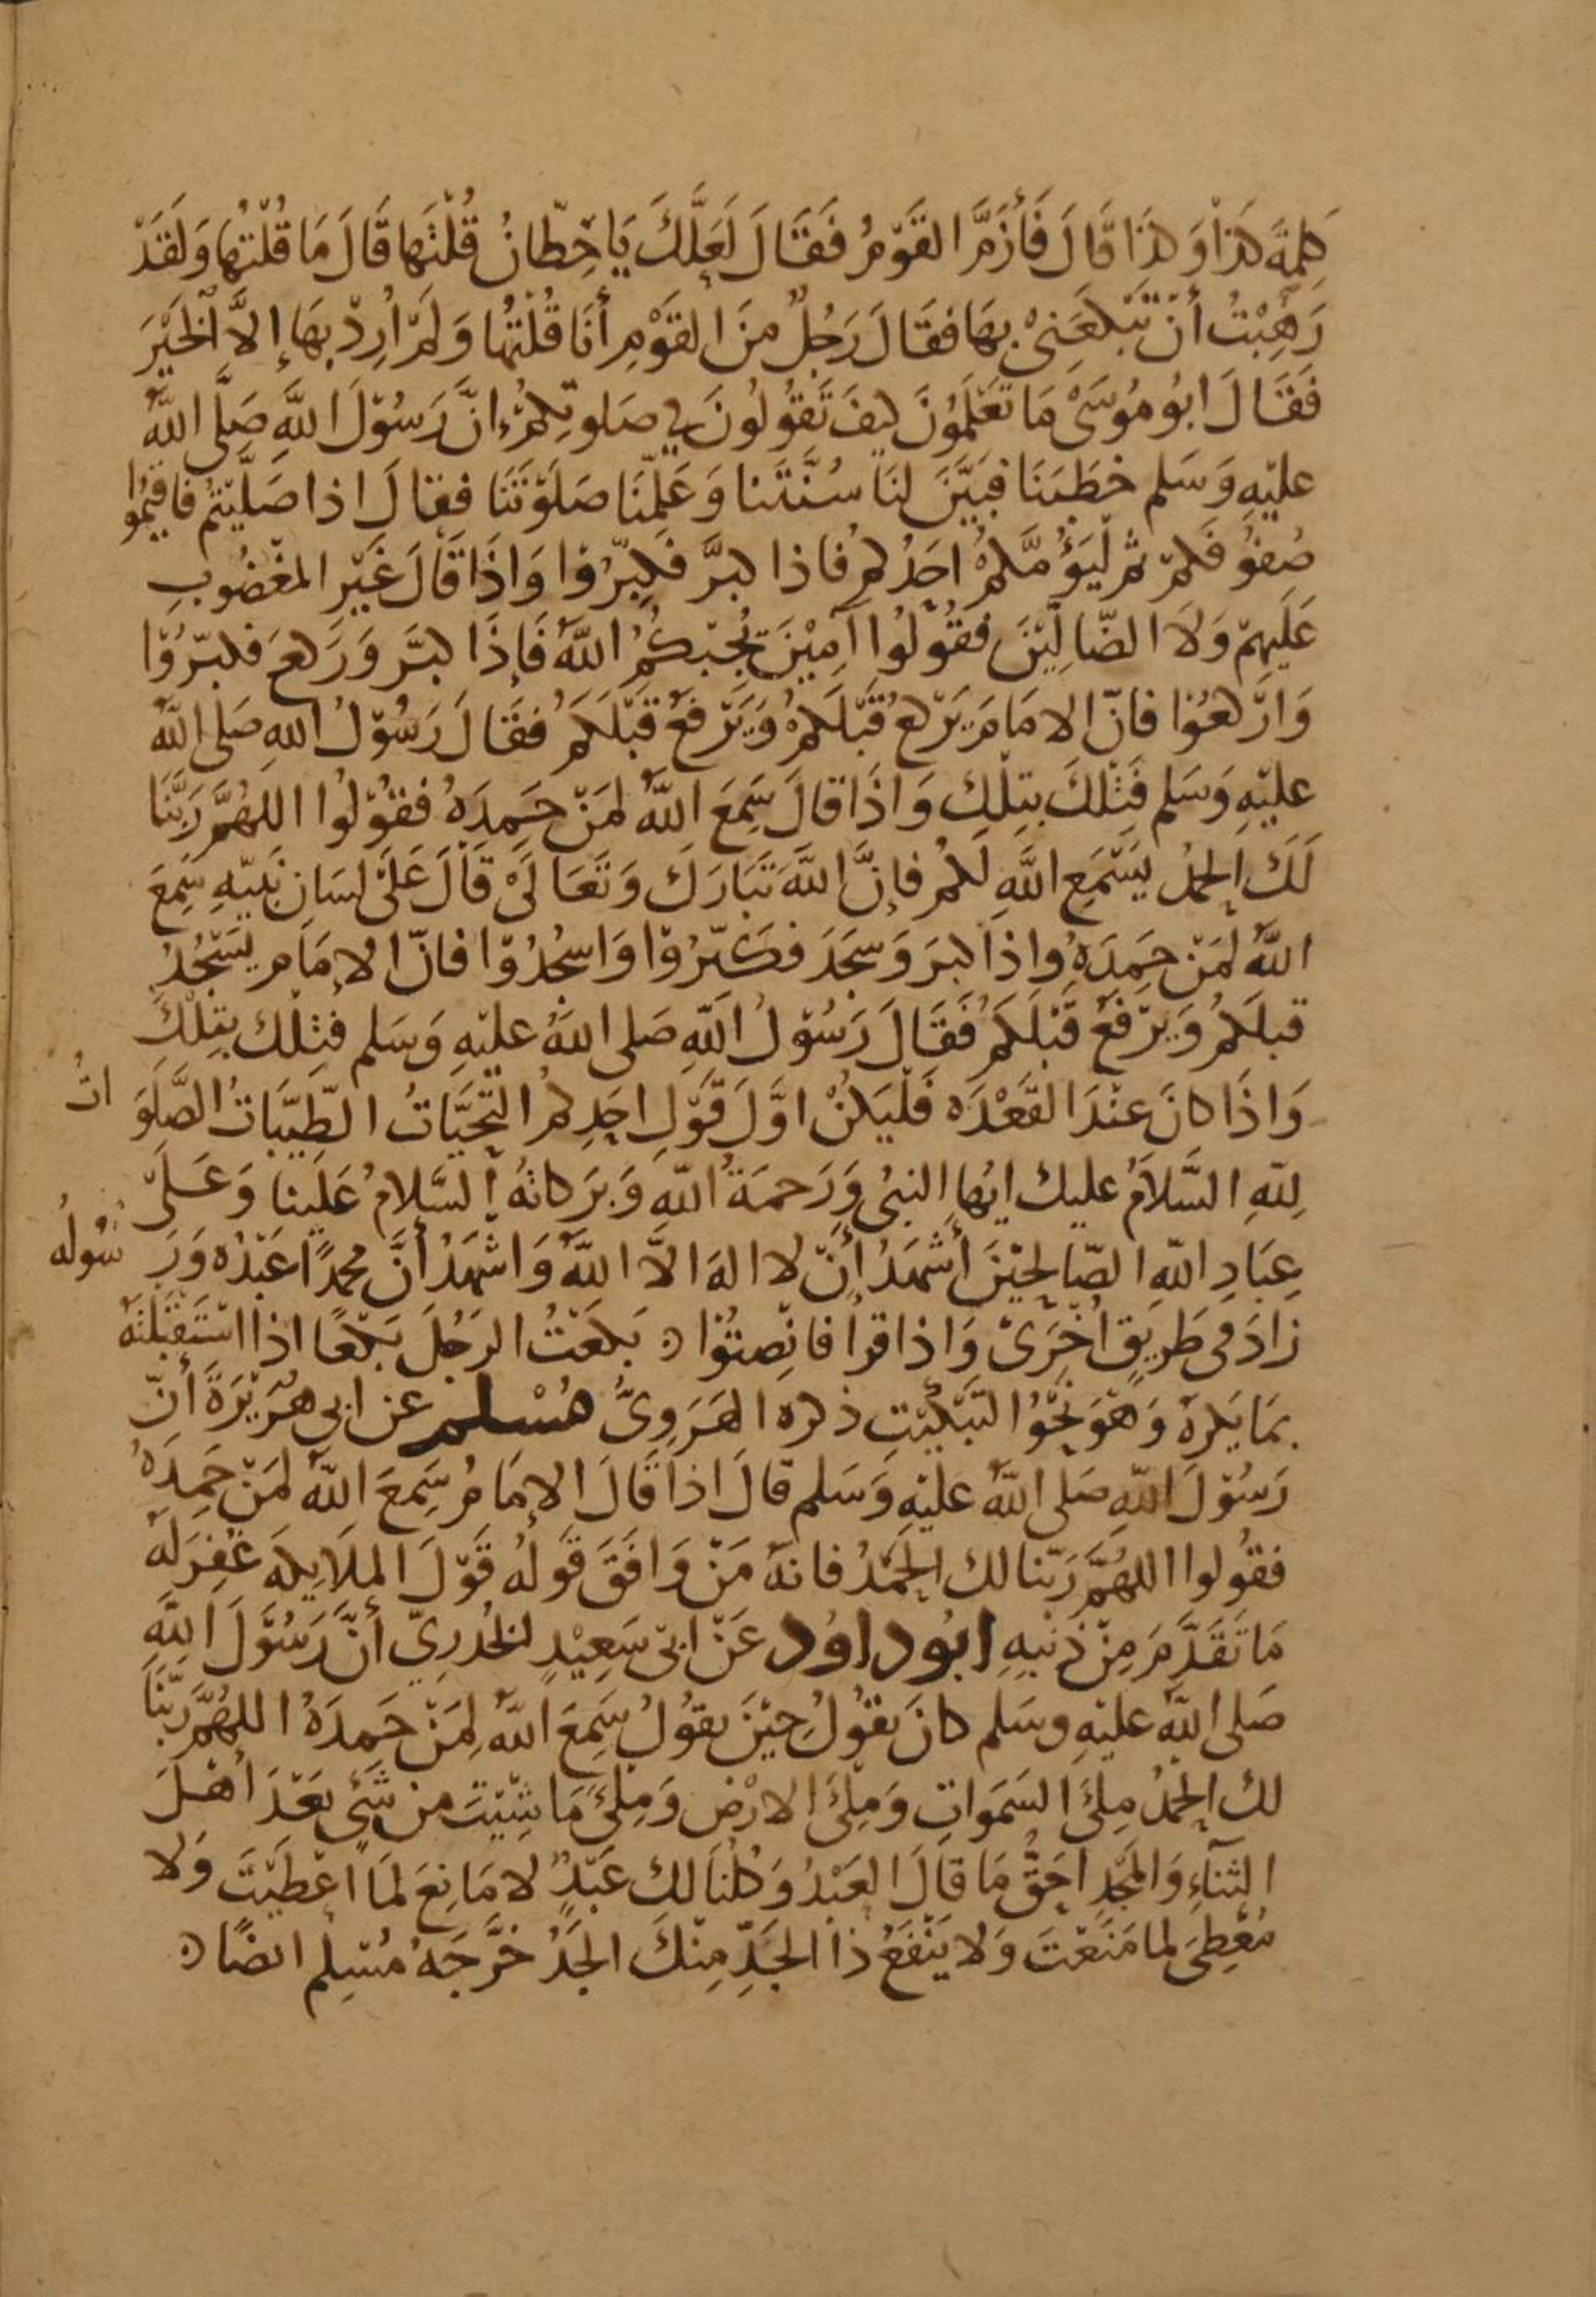 كَلِمَةَ كَذَا وَكَذَا قَالَ فَأَزَمَّ القَوْمُ فَقَالَ لَعَلَّكَ يَا حِطَّانُ قُلْتَهَا قَالَ مَا قُلْتُهَا وَلَقَدْ
رَهِبْتُ أَنْ تَبْكَعَنِيْ بِهَا فَقَالَ رَجُلٌ مِنَ القَوْمِ أَنَا قُلْتُهَا وَلَمْ اُرِدْ بِهَا إِلاَّ الخَيْرَ
فَقَالَ ابُو مُوْسَىْ مَا تَعْلَمُوْنَ كيفَ تَقُولُونَ في صَلوتِكمْ إنَّ رَسُوْلَ اللهِ صَلَّى اللهُ
عليْهِ وَسَلم خطَبَنَا فبَيَّنَ لنَا سُنَّتَنا وَعَلمنَا صَلَوتَنَا فقالَ اذا صَلَّيْتُمْ فاقيمُوا
صُفوُفَكمْ ثم لْيَؤُمَّكمْ احَدُكم فاذا كبرَّ فكبِّرُوْا وَاذَا قَالَ غَيْرِ المغْضُوبِ
عَلَيهِمْ وَلاَ الضَّالِّيْنَ فقُوْلُوا آمِيْنَ يُجْبكُمُ اللهُ فَإِذَا كبَّرَ وَرَكعَ فكبّرُوْا
وَارْكعُوْا فانّ الامَامَ يَرْكعُ قَبْلَكمْ وَيَرْفعُ قَبْلَكمُ فقَالَ رَسُوْلُ اللهِ صَلى اللهُ
عليْهِ وَسَلم فَتْلكَ بتِلْكِ وَاذَا قالَ سَمِعَ اللهُ لمَنْ حَمِدَهُ فقوُلُوا اللهُمَّ رَبَّنَا
لَكَ الحمْدُ يَسْمَعِ اللهِ لَكمْ فإنَّ اللهَ تَبَارَكَ وَتَعَالَىْ قَالَ عَلَىْ لسَانِ نَبيّهِ سَمِعَ
اللهُ لمَنْ حَمِدَهُ واذا كبرَ وَسَجَدَ فكَبّرُوْا وَاسْجُدُوْا فانّ الإمَامَ يَسْجُدُ
قبلَكمُ وَيَرْفعُ قَبْلَكمُ فَقَالَ رَسُوْلُ اللهِ صَلى اللهُ عليْهِ وَسَلم فتِلْكَ بتِلْكَ
وَاذَا كانَ عنْدَ القَعْدَه فَلْيَكنْ اوَّلَ قَوْلِ احَدِكمُ التحِيَّاتُ الطّيّبَاتُ الصَّلَوَاتُ
لِلّهِ السَّلاَمُ عليك ايُها النبىُ وَرَحمَةُ اللهِ وَبَرَكاتُهُ السَّلامُ عَلَينا وَعَلَىْ
عِبَادِ اللهِ الصَّالحِيْنَ أَشْهَدُ أنْ لا اله الاَّ اللهُ وَاشْهَدُ أنَّ محمدًا عَبْدُه وَرَسُولُه
زادَ فى طَريقٍ اخْرَىْ وَاذا قرأ فانْصِتُوْا بَكعْتُ الرَجُلَ بَكْعًا اذا اسْتَقْبَلْتَهُ
بمَا يَكرَهُ وَهْوَ نَحْوُ التَبْكيْتِ ذكره الهَرَوِىُّ مُسْلم عن ابي هُرَيْرَةَ أنّ
رَسُوْلَ اللهِ صَلى اللهُ عليْهِ وَسَلم قالَ اذا قَالَ الإمَامُ سَمِعَ اللهُ لمَنْ حَمِدَهُ
فقُولوا اللهُمَّ رَبّنا لك الحمْدُ فانهُ مَنْ وَافَقَ قَولُهُ قَوْلَ الملاَيكه غفِرَ لهُ
مَا تَقَدَّمَ مِنْ ذنْبِهِ ابُو داوُد عَنْ ابى سَعِيْدٍ الخُدْرِيِّ أنَّ رَسُوْلَ اللهِ
صَلى اللهُ عليْهِ وسَلم كانَ يقوْلُ حِيْنَ يقوُلُ سَمِعَ اللهُ لِمَنْ حَمِدَهُ اللهُمَّ رَبّنَا
لك الحمْدُ مِلئَ السَمَواتِ وَمِلْئَ الارْضِ وَمِلئَ مَا شِئتَ مِنْ شَئٍ بَعْدَ أهْلَ
الثنَاءِ وَالمَجْدِ احَقُّ مَا قالَ العَبْدُ وَكلنَا لك عَبْدٌ لا مَانِعَ لمَا اعْطَيْتَ وَلا
مُعْطِىَ لما مَنَعْتَ وَلا يَنْفَعُ ذا الجَدِّ مِنْكَ الجَدُّ خرَّجَهُ مُسْلِم ايضًا